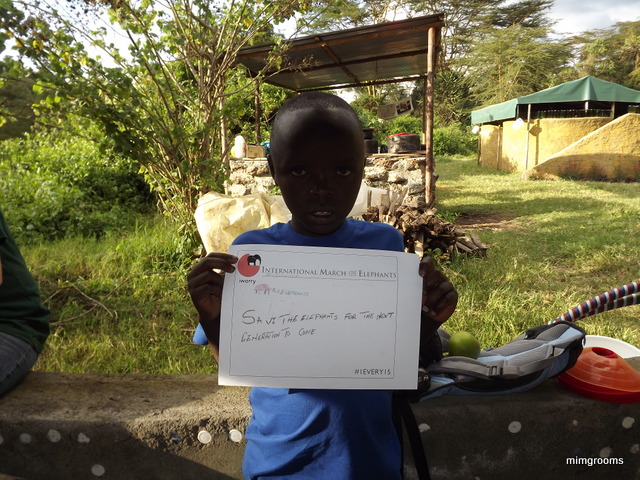 INTERNATIONAL MARCH FOR ELEPHANTS
iworry
SAVE THE ELEPHANTS FOR THE NEXT
GENERATION TO COME
#IEVERY15
mimgrooms